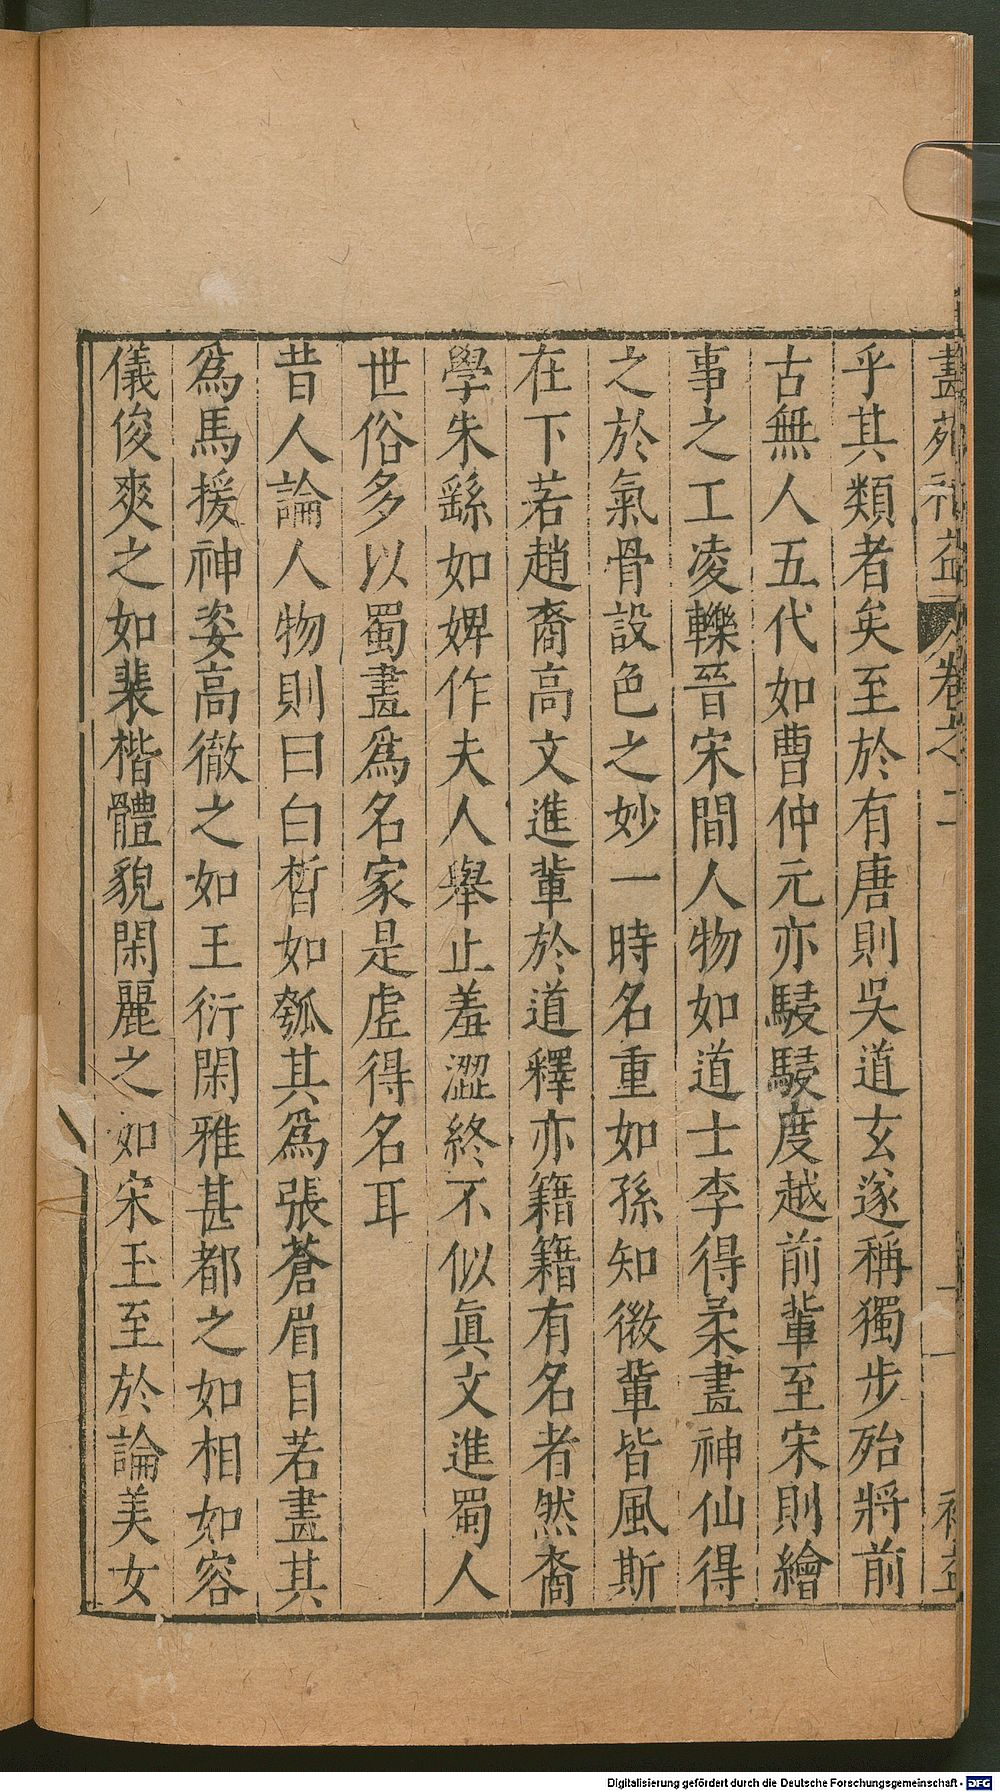 畫苑補益 卷之二
乎其類者矣至於有唐則吳道玄遂稱獨步殆將前
古無人五代如曹仲元亦駸駸度越前輩至宋則繪
事之工凌轢晉宋間人物如道士李得柔畫神仙得
之於氣骨設色之妙一時名重如孫知微輩皆風斯
在下若趙裔高文進輩於道釋亦籍籍有名者然裔
學朱繇如婢作夫人舉止羞澀終不似真文進蜀人
世俗多以蜀畫爲名家是虛得名耳
昔人論人物則曰白皙如瓠其爲張蒼眉目若畫其
爲馬援神姿高徹之如王衍閑雅甚都之如相如容
儀俊爽之如裴楷體貌閑麗之如宋玉至於論美女
Digitalisierung gefördert durch die Deutsche Forschungsgemeinschaft - DFG